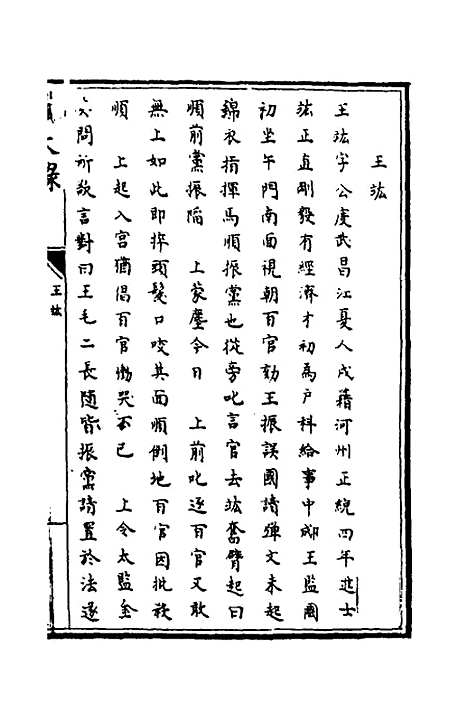 王竑
王竑字公度武昌江夏人戍籍河州正統四年進士
竑正直剛毅有經濟才初為戶科給事中郕王監國
初坐午門南面視朝百官劾王振誤國請彈文未起
錦衣指揮馬順振黨也從旁叱言官去竑奮臂起曰
順前黨振陷　上蒙塵今日　上前叱逐百官又敢
無上如此即捽頭髮口咬其面順倒地百官因批殺
順　上起入宮猶倡百官慟哭不已　上令太監金
英問所欲言對曰王毛二長隨皆振黨請置於法遂
大錄
王竑